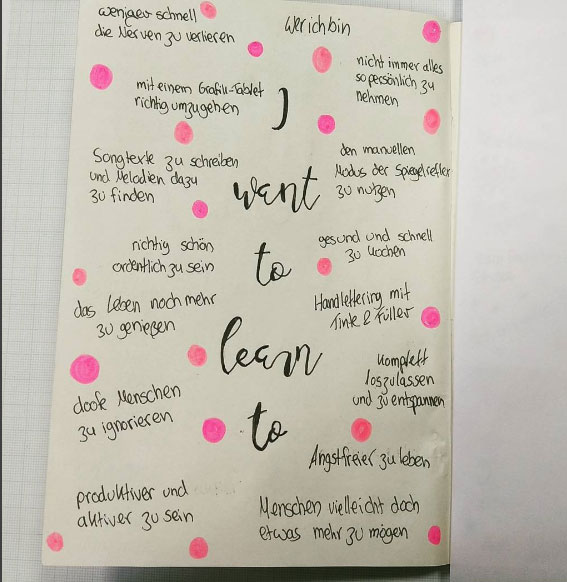 weniger schnell
die Nerven zu verlieren
wer ich bin
nicht immer alles
so persönlich zu
nehmen
mit einem Grafik-Tablet
richtig umzugehen
I
Songtexte zu schreiben
und Melodien dazu
zu finden
want
den manuellen
Modus der Spiegelreflex
zu nutzen
richtig schön
ordentlich zu sein
to
gesund und schnell
zu kochen
das Leben noch mehr
zu genießen
learn
Handlettering mit
Tinte & Füller
doofe Menschen
zu ignorieren
to
komplett
loszulassen
und zu entspannen
Angstfreier zu leben
produktiver und
aktiver zu sein
Menschen vielleicht doch
etwas mehr zu mögen